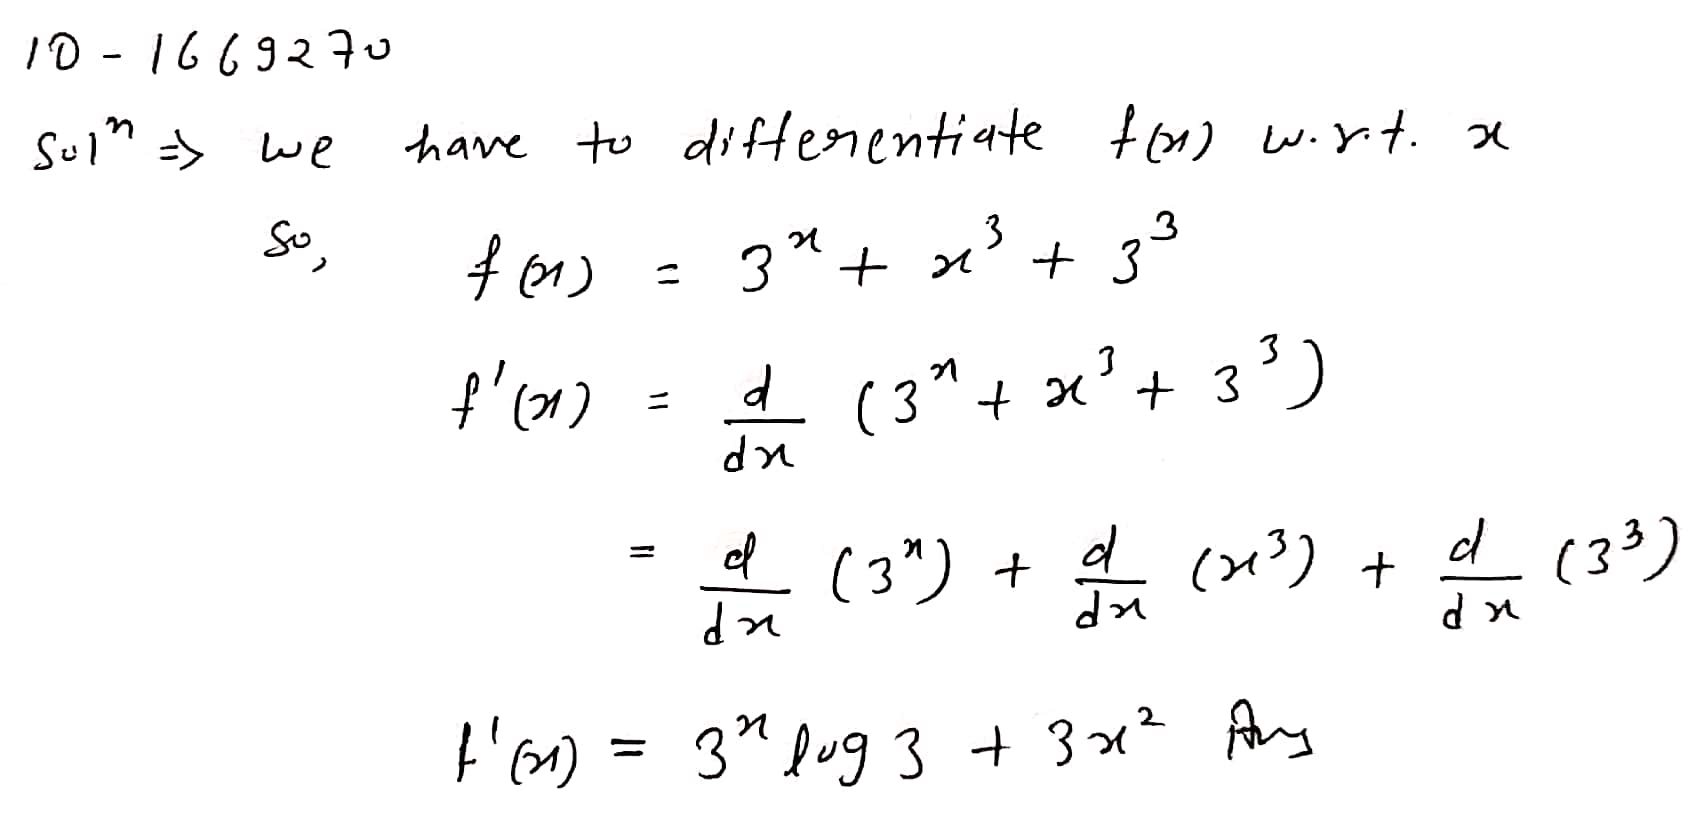 10 - 1669270
Solⁿ ⇒ we have to differentiate f(x) w.r.t. x
So, f(x) = 3ˣ + x³ + 3³
f'(x) = d/dx (3ˣ + x³ + 3³)
= d/dx (3ˣ) + d/dx (x³) + d/dx (3³)
f'(x) = 3ˣ log 3 + 3x² Ans